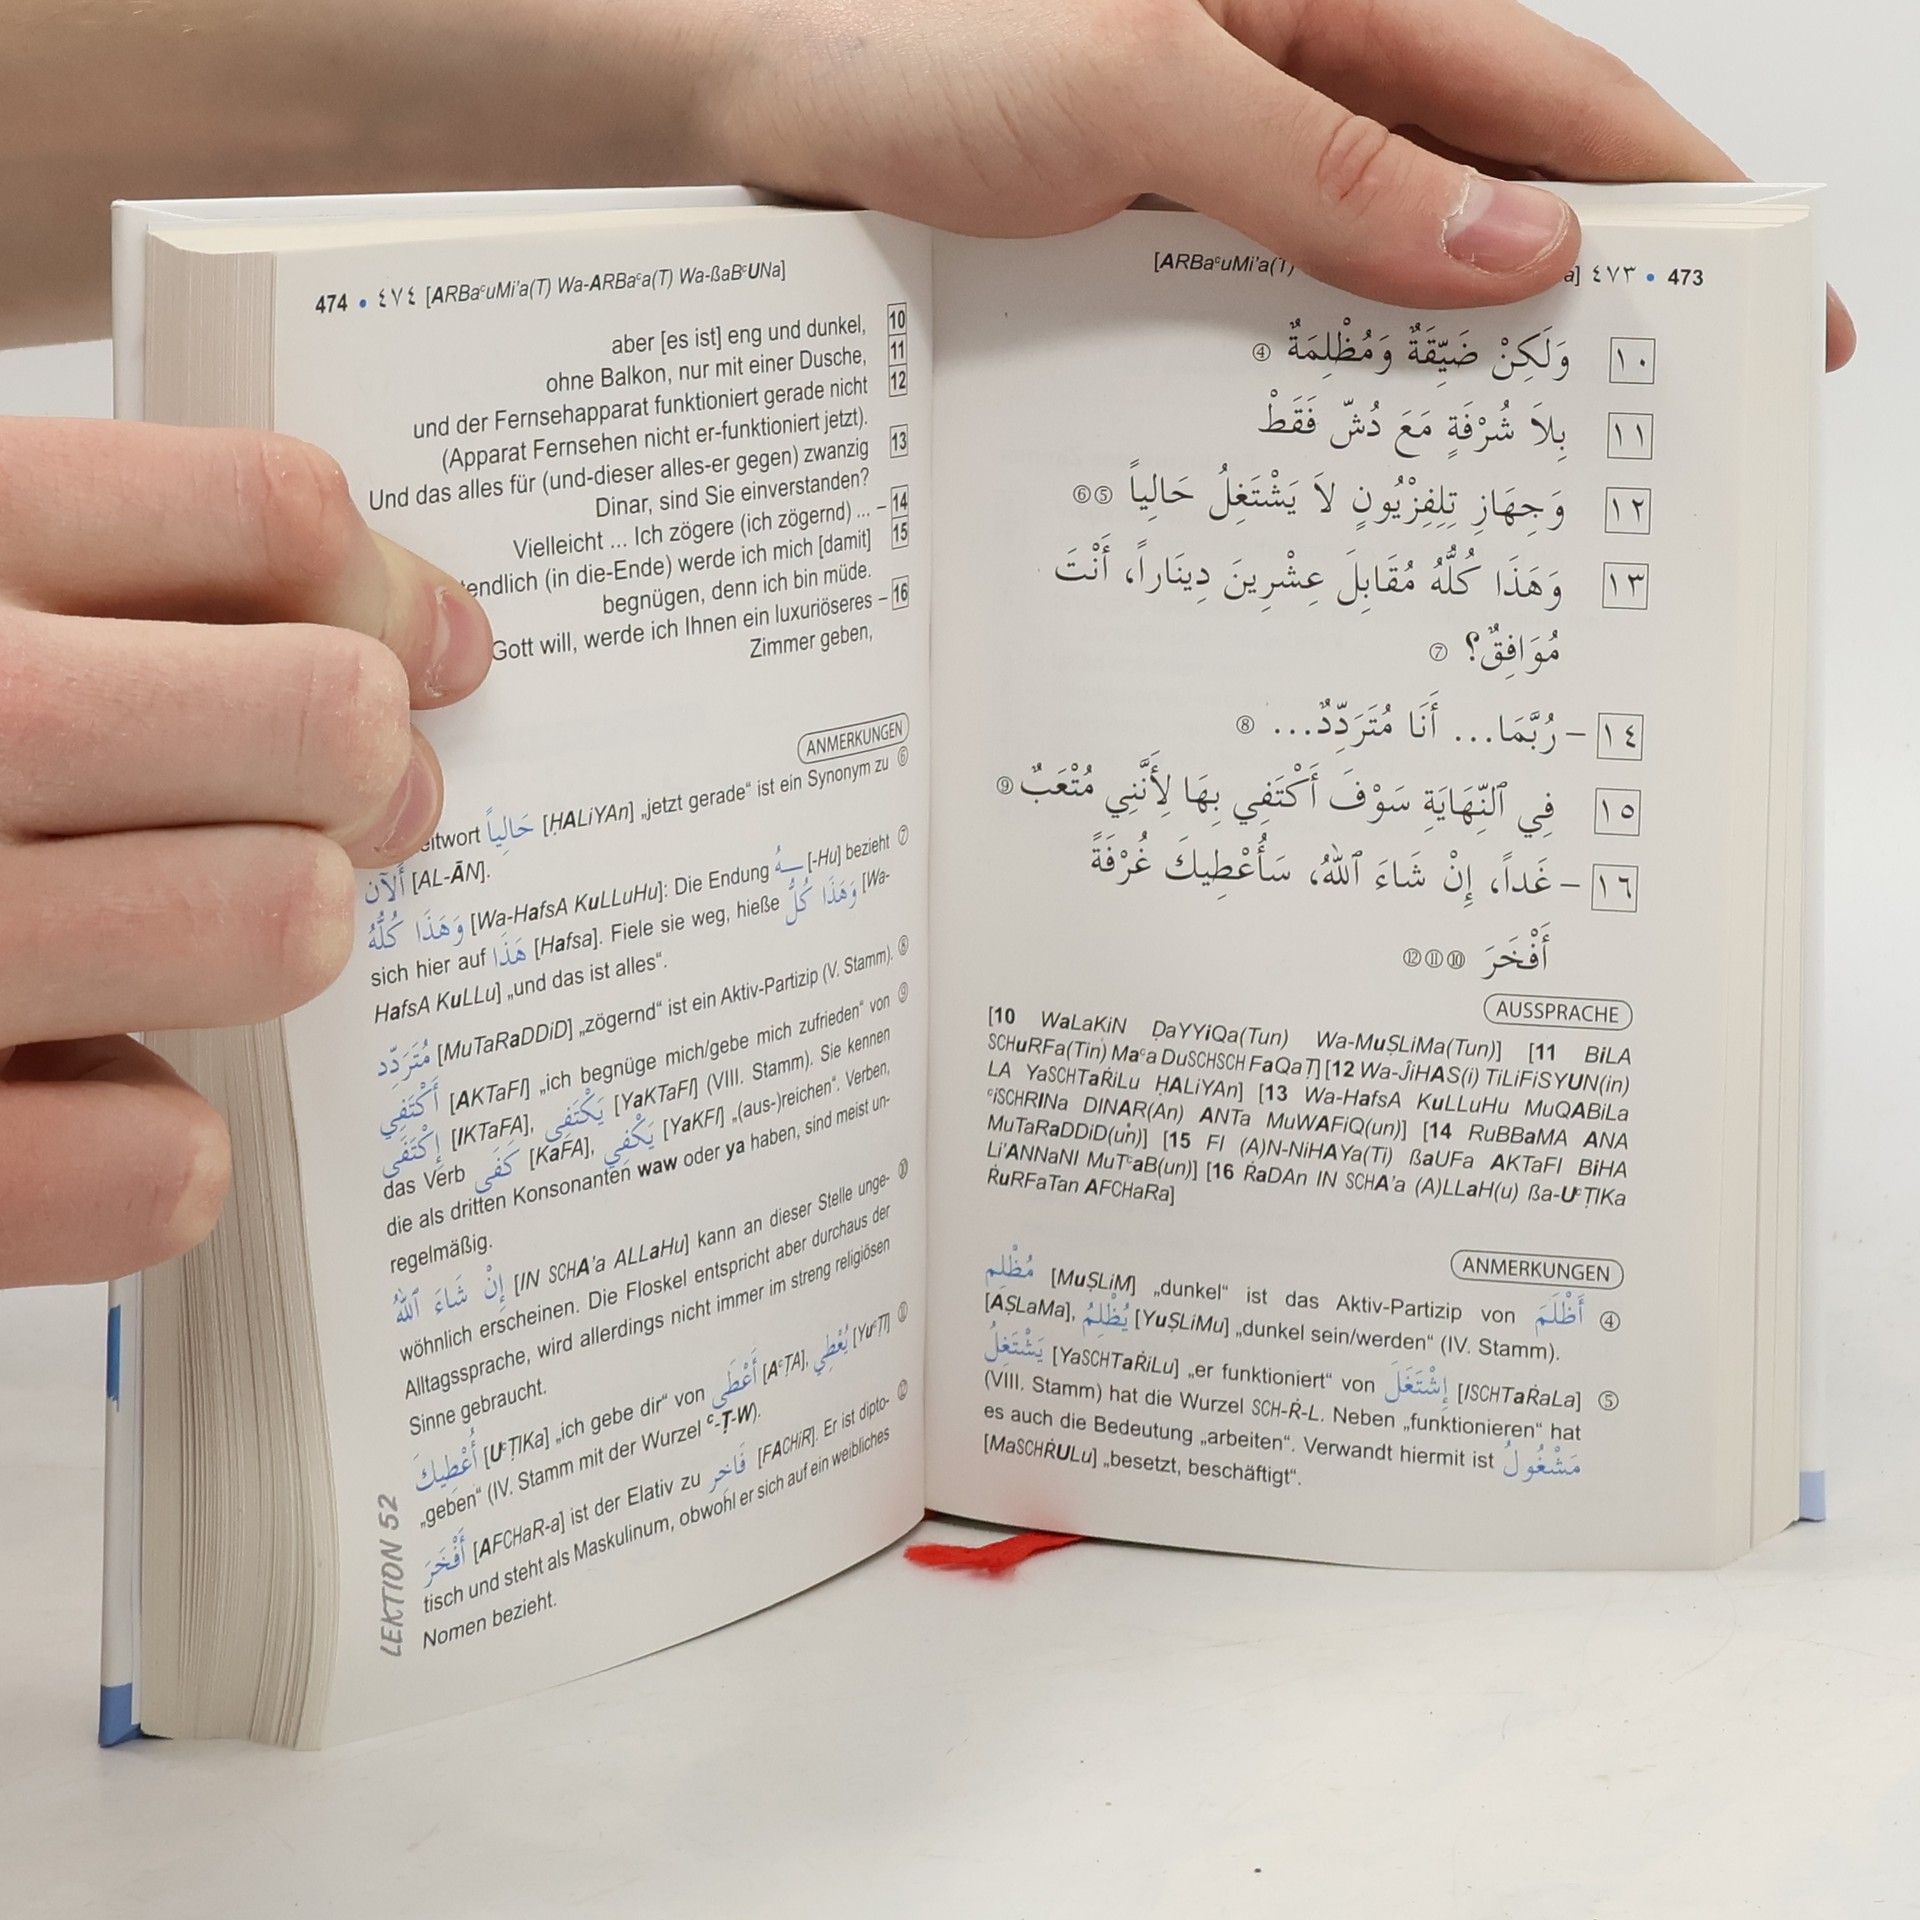 474 • ٤٧٤ [ARBaᶜuMi’a(T) Wa-ARBaᶜa(T) Wa-ßaBᶜUNa]
aber [es ist] eng und dunkel, 10
ohne Balkon, nur mit einer Dusche, 11
und der Fernsehapparat funktioniert gerade nicht 12
(Apparat Fernsehen nicht er-funktioniert jetzt).
Und das alles für (und-dieser alles-er gegen) zwanzig 13
Dinar, sind Sie einverstanden?
Vielleicht ... Ich zögere (ich zögernd) ... – 14
(in die-Ende) werde ich mich [damit] 15
begnügen, denn ich bin müde.
Gott will, werde ich Ihnen ein luxuriöseres – 16
Zimmer geben,
ANMERKUNGEN
حَالِياً [ḤALiYAn] „jetzt gerade“ ist ein Synonym zu ⑥
أَلآن [AL-ĀN].
وَهَذَا كُلُّهُ [Wa-HafsA KuLLuHu]: Die Endung ـهُ [-Hu] bezieht ⑦
sich hier auf هَذَا [Hafsa]. Fiele sie weg, hieße وَهَذَا كُلُّ [Wa-
HafsA KuLLu] „und das ist alles“.
مُتَرَدِّد [MuTaRaDDiD] „zögernd“ ist ein Aktiv-Partizip (V. Stamm). ⑧
أَكْتَفِي [AKTaFI] „ich begnüge mich/gebe mich zufrieden“ von ⑨
إِكْتَفَى [IKTaFA], يَكْتَفِي [YaKTaFI] (VIII. Stamm). Sie kennen
das Verb كَفَى [KaFA], يَكْفِي [YaKFI] „(aus-)reichen“. Verben,
die als dritten Konsonanten waw oder ya haben, sind meist un-
regelmäßig.
إِنْ شَاءَ ٱللهُ [IN SCHA’a ALLaHu] kann an dieser Stelle unge- ⑩
wöhnlich erscheinen. Die Floskel entspricht aber durchaus der
Alltagssprache, wird allerdings nicht immer im streng religiösen
Sinne gebraucht.
أُعْطِيكَ [UᶜṬIKa] „ich gebe dir“ von أَعْطَى [AᶜṬA], يُعْطِي [YuᶜṬI] ⑪
„geben“ (IV. Stamm mit der Wurzel ᶜ-Ṭ-W).
أَفْخَرَ [AFCHaR-a] ist der Elativ zu فَاخِر [FACHiR]. Er ist dipto- ⑫
tisch und steht als Maskulinum, obwohl er sich auf ein weibliches
Nomen bezieht.
LEKTION 52
[ARBaᶜuMi’a(T) a] ٤٧٣ • 473
١٠ وَلَكِنْ ضَيِّقَةٌ وَمُظْلِمَةٌ ④
١١ بِلاَ شُرْفَةٍ مَعَ دُشّ فَقَطْ
١٢ وَجِهَازِ تِلِفِزْيُونٍ لاَ يَشْتَغِلُ حَالِياً ⑤⑥
١٣ وَهَذَا كُلُّهُ مُقَابِلَ عِشْرِينَ دِينَاراً، أَنْتَ
مُوَافِقٌ؟ ⑦
١٤ – رُبَّمَا... أَنَا مُتَرَدِّدٌ... ⑧
١٥ فِي ٱلنِّهَايَةِ سَوْفَ أَكْتَفِي بِهَا لِأَنَّنِي مُتْعَبٌ ⑨
١٦ – غَداً، إِنْ شَاءَ ٱللهُ، سَأُعْطِيكَ غُرْفَةً
أَفْخَرَ ⑩⑪⑫
AUSSPRACHE
[10 WaLaKiN ḌaYYiQa(Tun) Wa-MuṢLiMa(Tun)] [11 BiLA
SCHuRFa(Tin) Maᶜa DuSCHSCH FaQaṬ] [12 Wa-ĴiHAS(i) TiLiFiSYUN(in)
LA YaSCHTaṘiLu ḤALiYAn] [13 Wa-HafsA KuLLuHu MuQABiLa
ᶜiSCHRINa DINAR(An) ANTa MuWAFiQ(un)] [14 RuBBaMA ANA
MuTaRaDDiD(un)] [15 FI (A)N-NiHAYa(Ti) ßaUFa AKTaFI BiHA
Li’ANNaNI MuTᶜaB(un)] [16 ṘaDAn IN SCHA’a (A)LLaH(u) ßa-UᶜṬIKa
ṘuRFaTan AFCHaRa]
ANMERKUNGEN
مُظْلِم [MuṢLiM] „dunkel“ ist das Aktiv-Partizip von أَظْلَمَ ④
[AṢLaMa], يُظْلِمُ [YuṢLiMu] „dunkel sein/werden“ (IV. Stamm).
يَشْتَغِلُ [YaSCHTaṘiLu] „er funktioniert“ von إِشْتَغَلَ [ISCHTaṘaLa] ⑤
(VIII. Stamm) hat die Wurzel SCH-Ṙ-L. Neben „funktionieren“ hat
es auch die Bedeutung „arbeiten“. Verwandt hiermit ist مَشْغُولُ
[MaSCHṘULu] „besetzt, beschäftigt“.